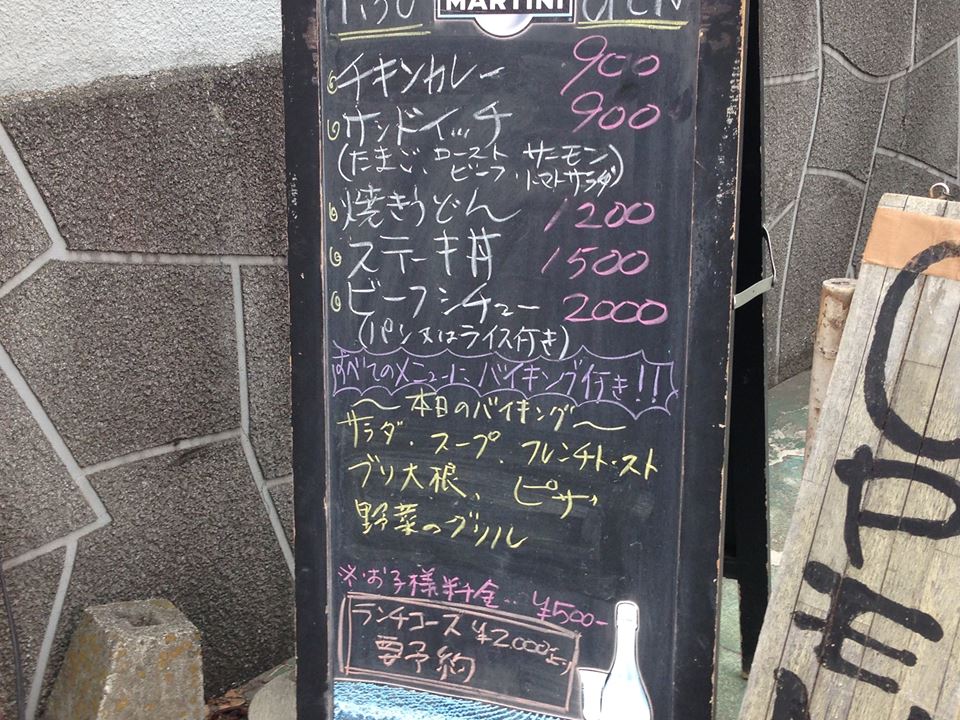 MARTINI
OPEN
チキンカレー 900
サンドイッチ 900
(たまご、ローストビーフ、サーモン、トマトサラダ)
焼きうどん 1200
ステーキ丼 1500
ビーフシチュー 2000
(パン又はライス付き)
すべてのメニューにバイキング付き!!
〜本日のバイキング〜
サラダ・スープ、フレンチトースト
ブリ大根、ピザ
野菜のグリル
※お子様料金‥¥500-
ランチコース ¥2000より
要予約